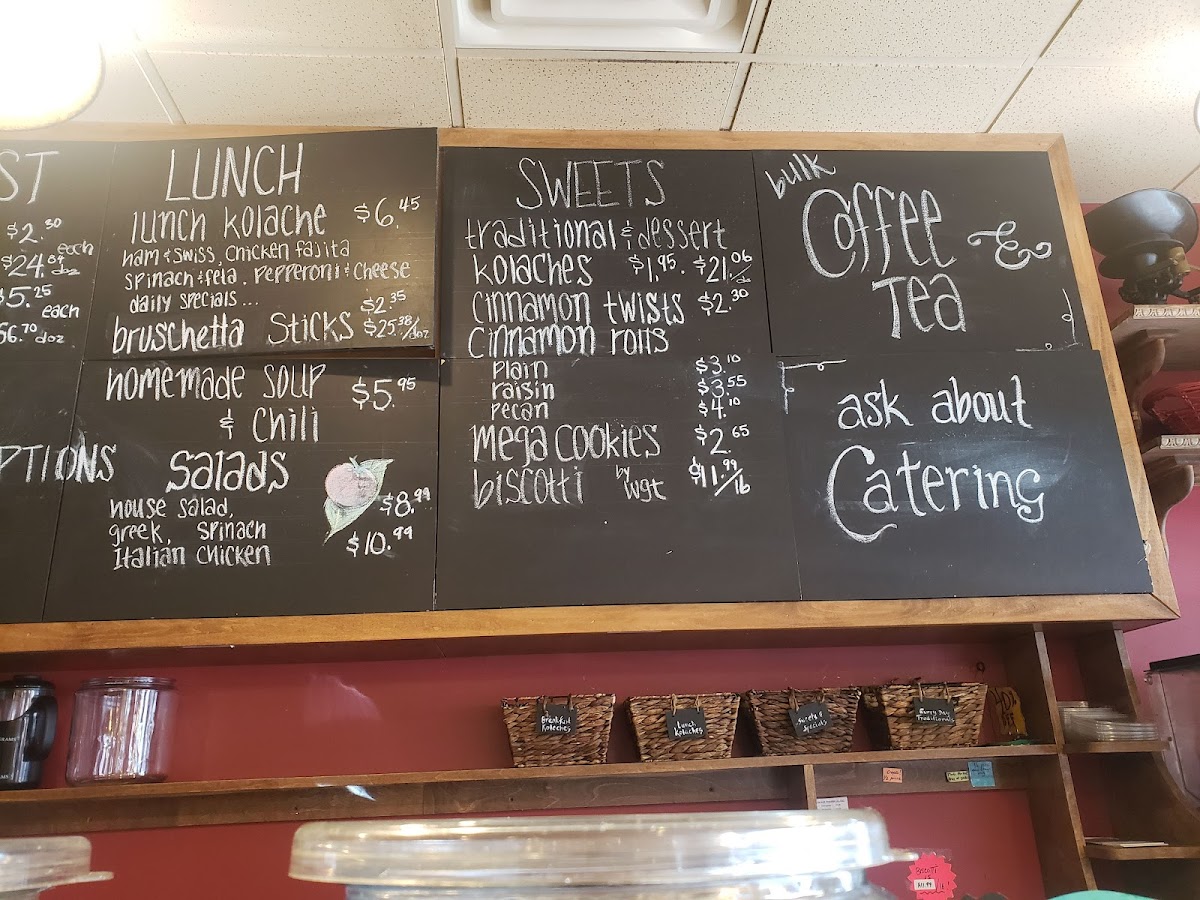 ST
$2.30
each
$24.
doz
$5.25
each
56.70 doz
PTIONS
LUNCH
lunch kolache $6.45
ham & swiss, chicken fajita
spinach & feta. pepperoni & cheese
daily specials...
$2.35
bruschetta sticks $25.38/doz
homemade soup $5.95
& chili
salads
house salad, $8.99
greek, spinach
Italian chicken $10.99
SWEETS
traditional & dessert
kolaches $1.95. $21.06
cinnamon twists $2.30
cinnamon rolls
plain $3.10
raisin $3.55
pecan $4.10
mega cookies $2.65
biscotti by wgt $11.99/lb
bulk
Coffee &
Tea
ask about
Catering
Breakfast
Kolaches
Lunch
Kolaches
Sweets &
Specials
Every Day
Traditionals
BISCOTTI